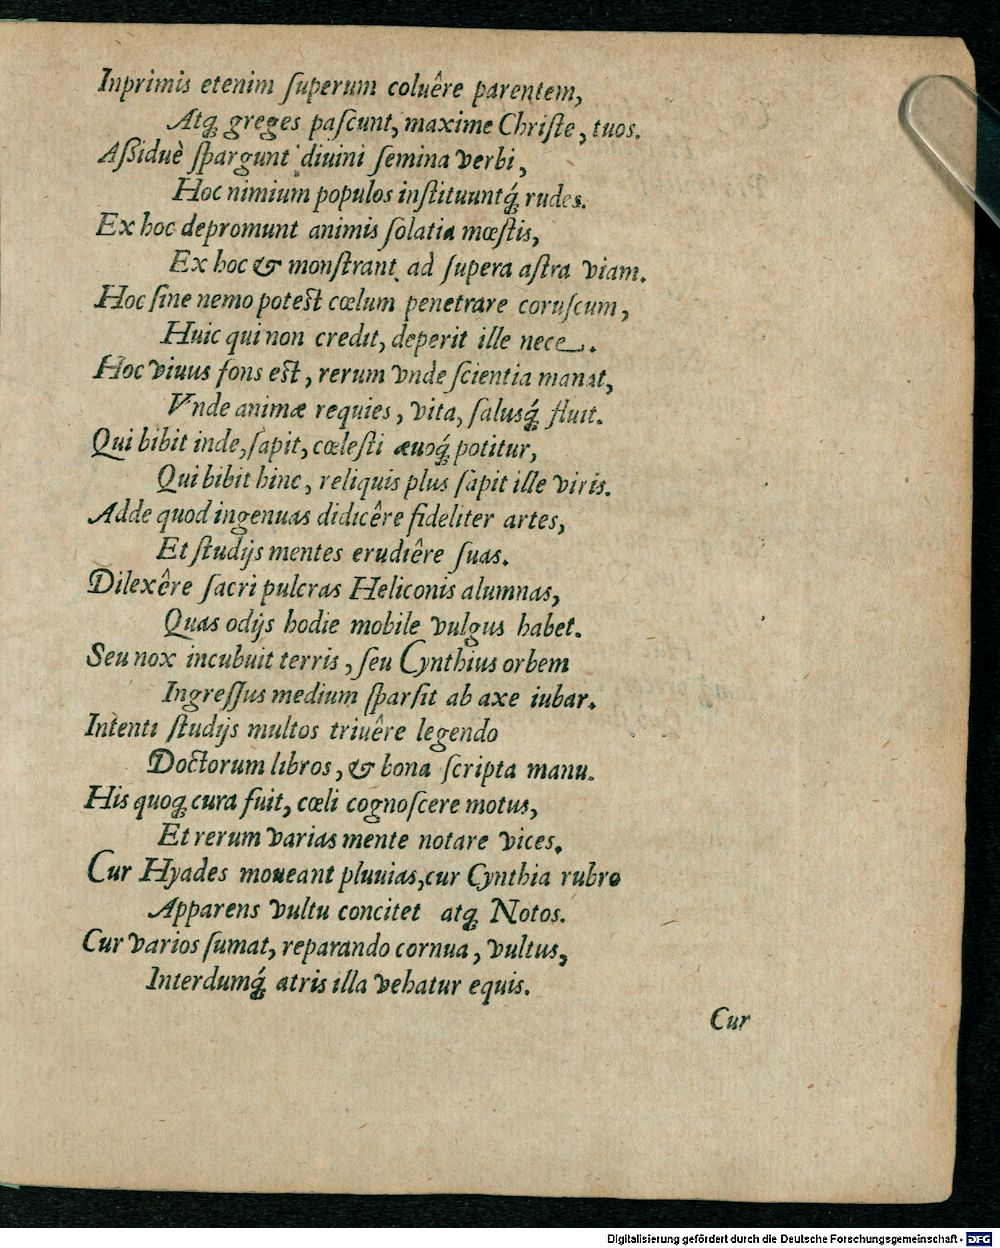 Inprimis etenim ſuperum coluêre parentem,
Atq́ greges paſcunt, maxime Chriſte, tuos.
Aßiduè ſpargunt diuini ſemina verbi,
Hoc nimium populos inſtituuntq́ rudes.
Ex hoc depromunt animis ſolatia mœſtis,
Ex hoc & monſtrant ad ſupera aſtra viam.
Hoc ſine nemo poteſt cœlum penetrare coruſcum,
Huic qui non credit, deperit ille nece.
Hoc viuus fons eſt, rerum vnde ſcientia manat,
Vnde animæ requies, vita, ſalusq́ fluit.
Qui bibit inde, ſapit, cœleſti æuoq́ potitur,
Qui bibit hinc, reliquis plus ſapit ille viris.
Adde quod ingenuas didicêre fideliter artes,
Et ſtudijs mentes erudiêre ſuas.
Dilexêre ſacri pulcras Heliconis alumnas,
Quas odijs hodie mobile vulgus habet.
Seu nox incubuit terris, ſeu Cynthius orbem
Ingreſſus medium ſparſit ab axe iubar.
Intenti ſtudijs multos triuêre legendo
Doctorum libros, & bona ſcripta manu.
His quoq́ cura fuit, cœli cognoſcere motus,
Et rerum varias mente notare vices.
Cur Hyades moueant pluuias, cur Cynthia rubro
Apparens vultu concitet atq́ Notos.
Cur varios ſumat, reparando cornua, vultus,
Interdumq́ atris illa vehatur equis.
Cur
Digitalisierung gefördert durch die Deutsche Forschungsgemeinschaft - DFG